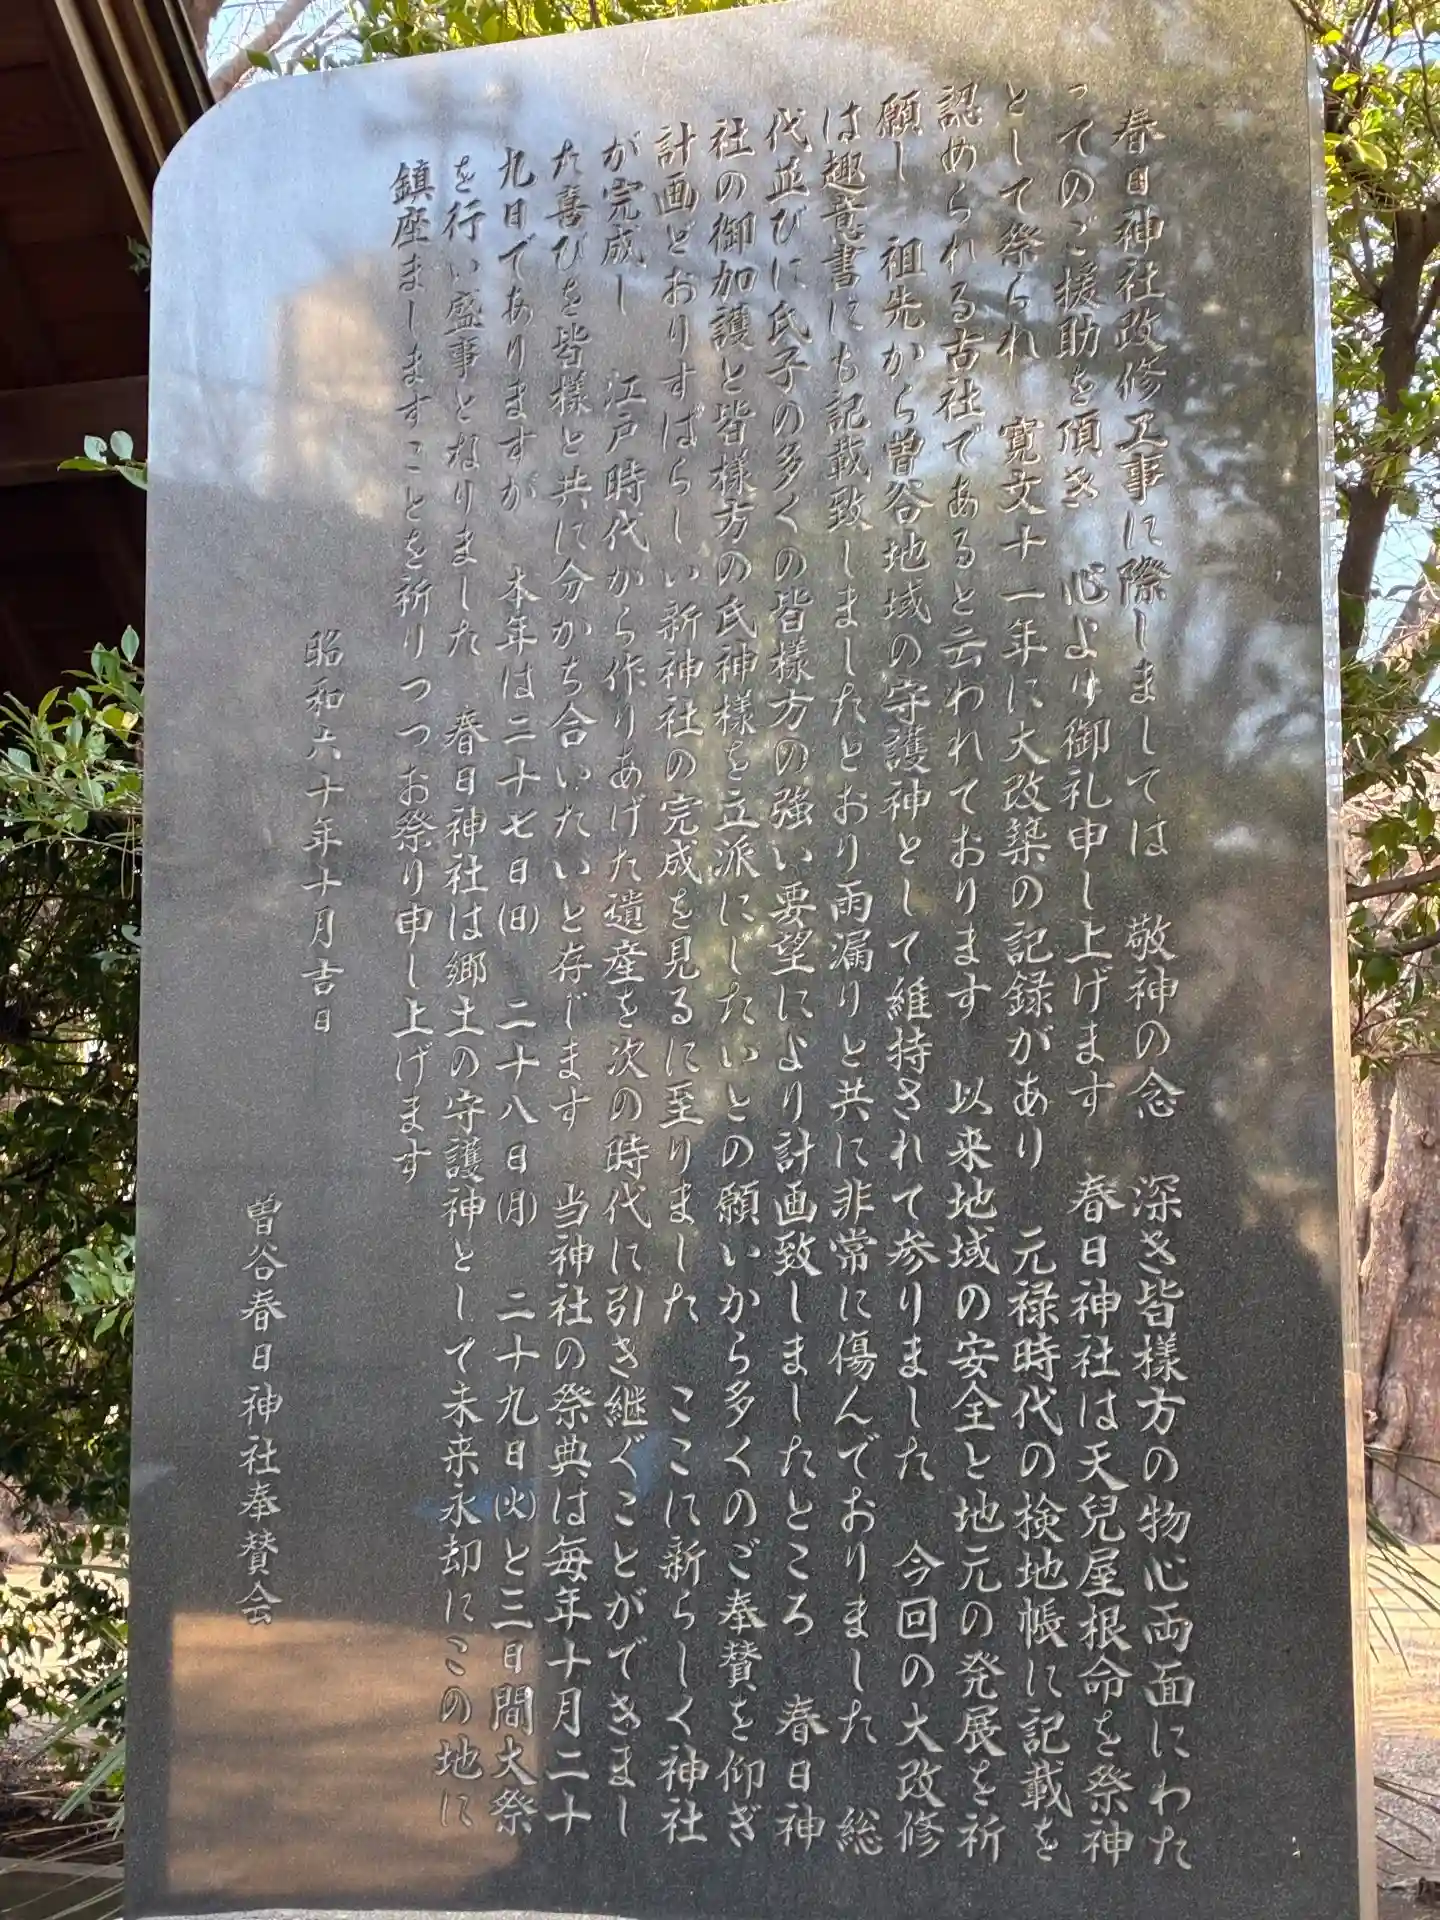 春日神社改修工事に際しましては　敬神の念　深き皆様方の物心両面にわた
ってのご援助を頂き　心より御礼申し上げます　春日神社は天兒屋根命を祭神
として祭られ　寛文十一年に大改築の記録があり　元禄時代の検地帳に記載を
認められる古社であると云われております　以来地域の安全と地元の発展を祈
願し　祖先から曽谷地域の守護神として維持されて参りました　今回の大改修
は趣意書にも記載致しましたとおり雨漏りと共に非常に傷んでおりました　総
代並びに氏子の多くの皆様方の強い要望により計画致しましたところ　春日神
社の御加護と皆様方の氏神様を立派にしたいとの願いから多くのご奉賛を仰ぎ
計画どおりすばらしい新神社の完成を見るに至りました　ここに新らしく神社
が完成し　江戸時代から作りあげた遺産を次の時代に引き継ぐことができまし
た喜びを皆様と共に分かち合いたいと存じます　当神社の祭典は毎年十月二十
九日でありますが　本年は二十七日(日)　二十八日(月)　二十九日(火)と三日間大祭
を行い盛事となりました　春日神社は郷土の守護神として未来永却にこの地に
鎮座ましますことを祈りつつお祭り申し上げます
昭和六十年十月吉日
曽谷春日神社奉賛会